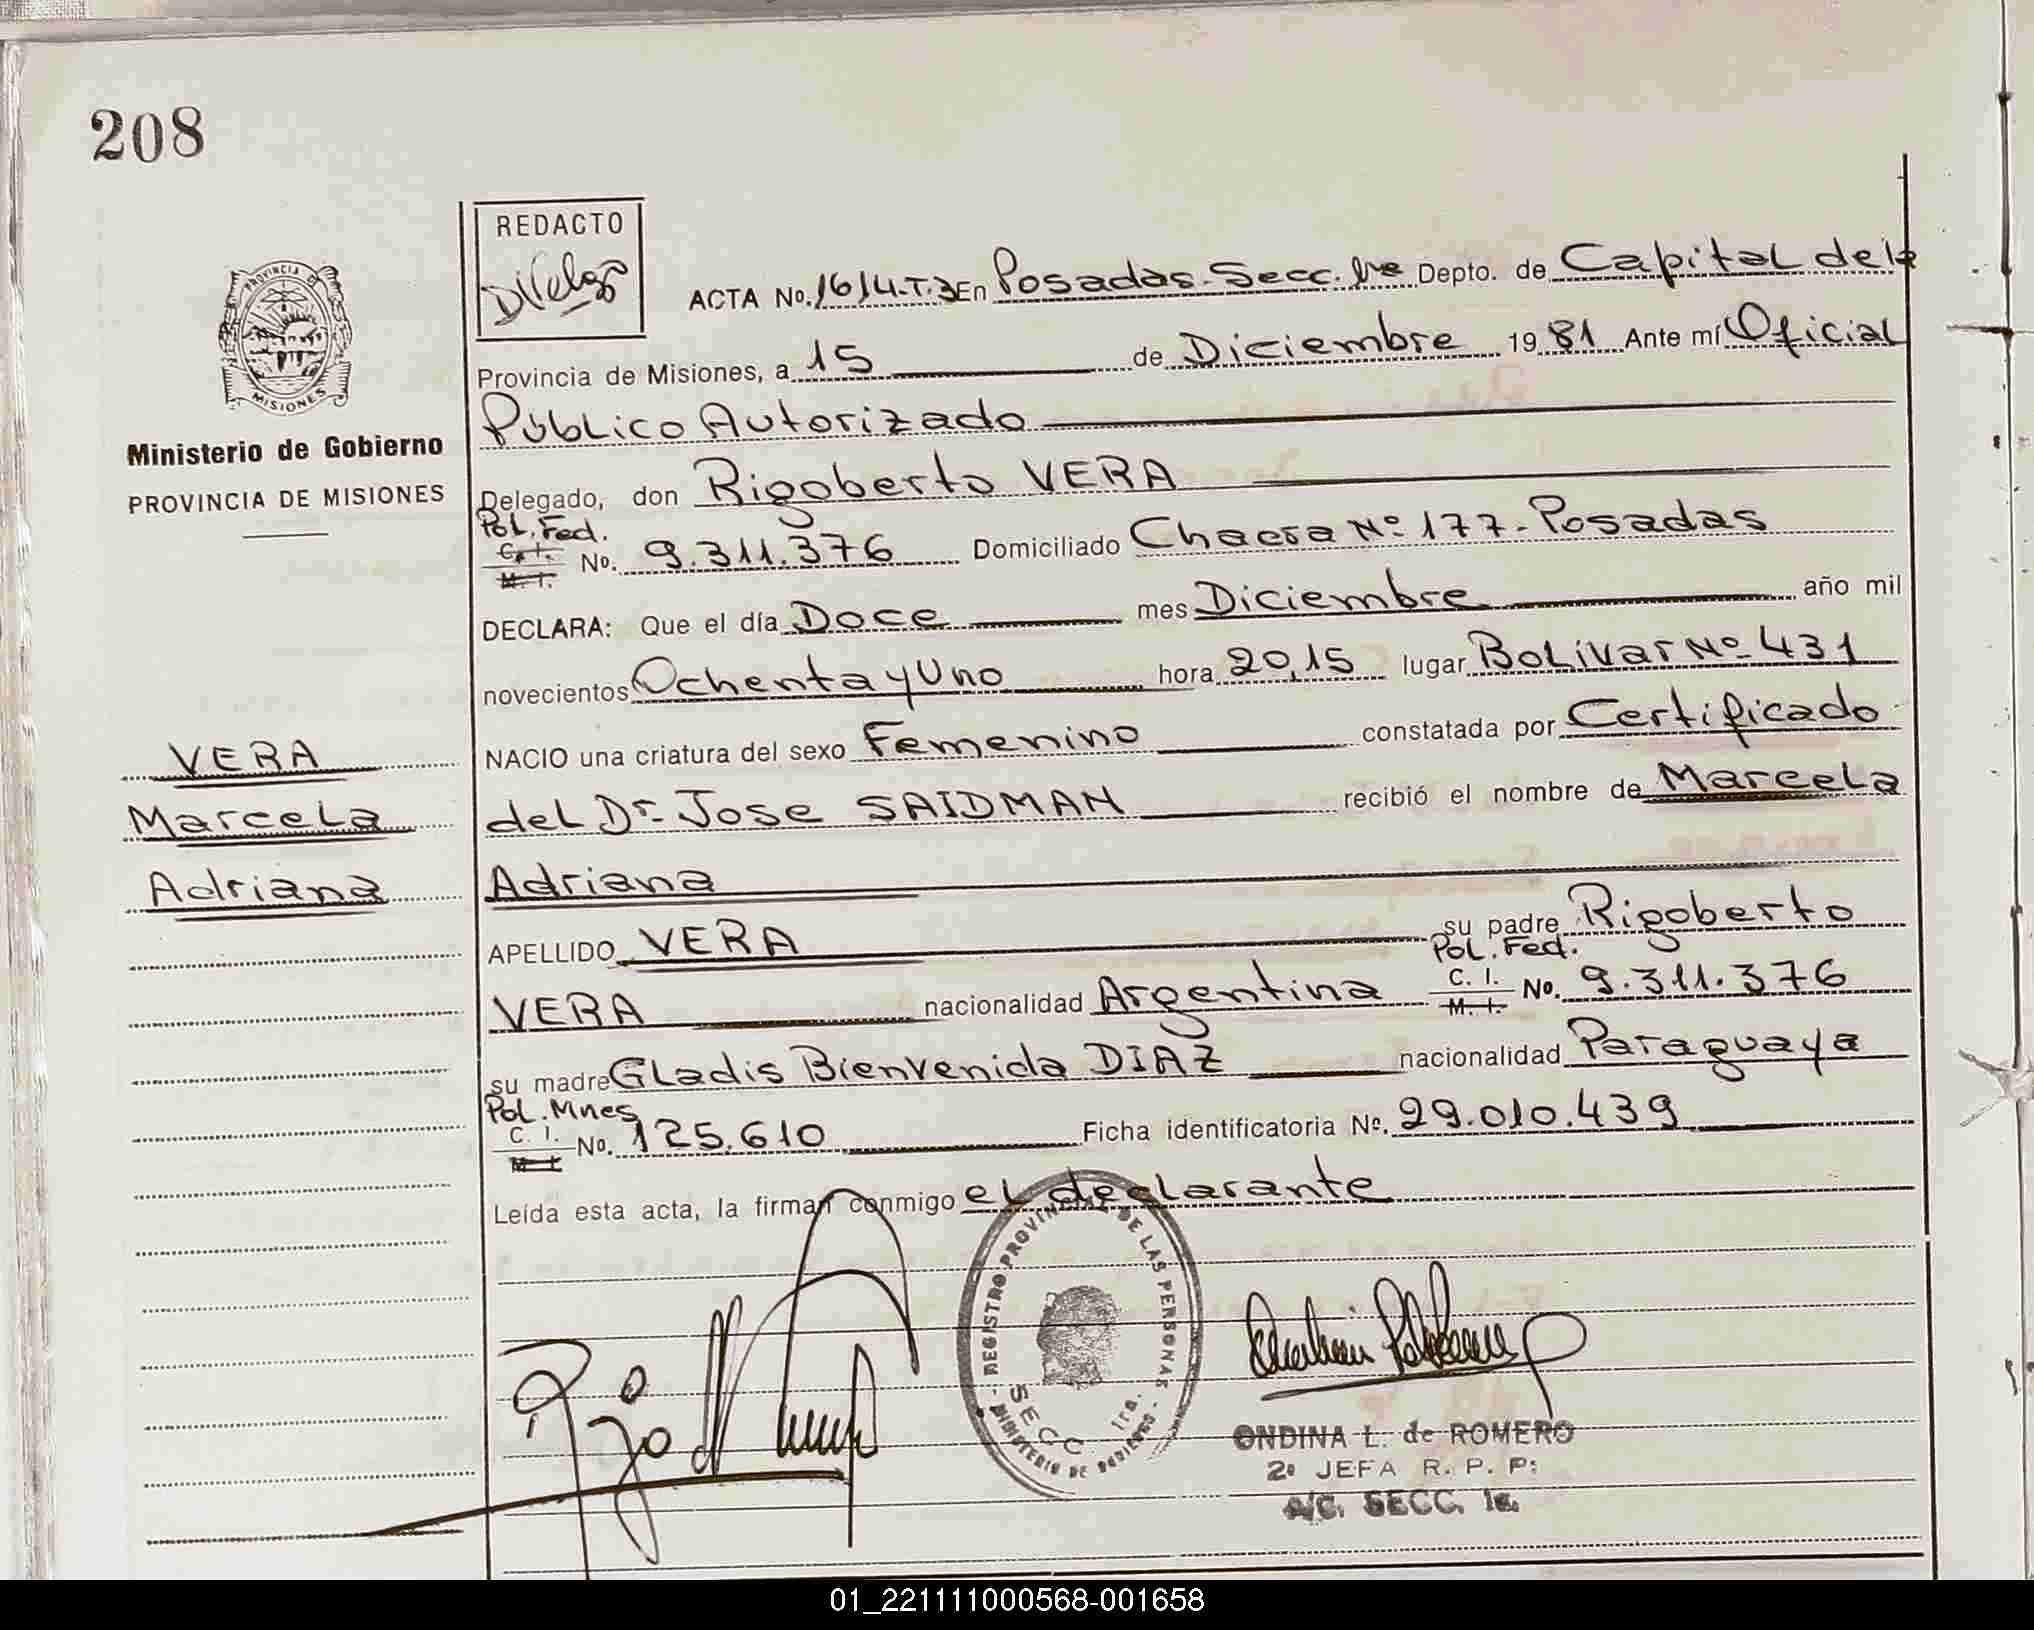 208
REDACTO
PROVINCIA DE
MISIONES
ACTA No. 1614-T.3 En Posadas-Secc. 1ra Depto. de Capital de la
Provincia de Misiones, a 15 de Diciembre 1981 Ante mí Oficial
Público Autorizado
Ministerio de Gobierno
PROVINCIA DE MISIONES
Delegado, don Rigoberto VERA
Pol. Fed.
C. I. No. 9.311.376 Domiciliado Chacra Nº 177-Posadas
M. I.
DECLARA: Que el día Doce mes Diciembre año mil
novecientos Ochenta y Uno hora 20,15 lugar Bolivar Nº 431
VERA
NACIO una criatura del sexo Femenino constatada por Certificado
Marcela
del Dr. Jose SAIDMAN recibió el nombre de Marcela
Adriana
Adriana
APELLIDO VERA su padre Rigoberto
Pol. Fed.
VERA nacionalidad Argentina C. I. No. 9.311.376
M. I.
su madre Gladis Bienvenida DIAZ nacionalidad Paraguaya
Pol. Mnes
C. I. No. 125.610 Ficha identificatoria Nº. 29.010.439
M. I.
Leída esta acta, la firman conmigo el declarante
REGISTRO PROVINCIAL DE LAS PERSONAS
SECC. 1ra.
MINISTERIO DE GOBIERNO
ONDINA L. de ROMERO
2º JEFA R. P. P.
A/C. SECC. 1a.
01_221111000568-001658